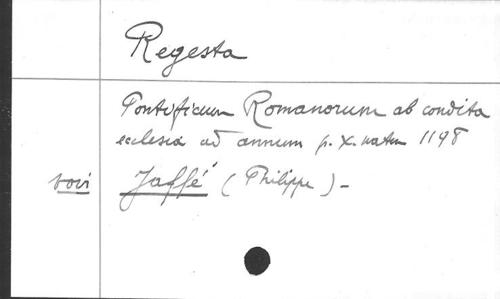 Regesta
Pontificum Romanorum ab condita
ecclesia ad annum p. X. natum 1198
voir Jaffé (Philippe) -